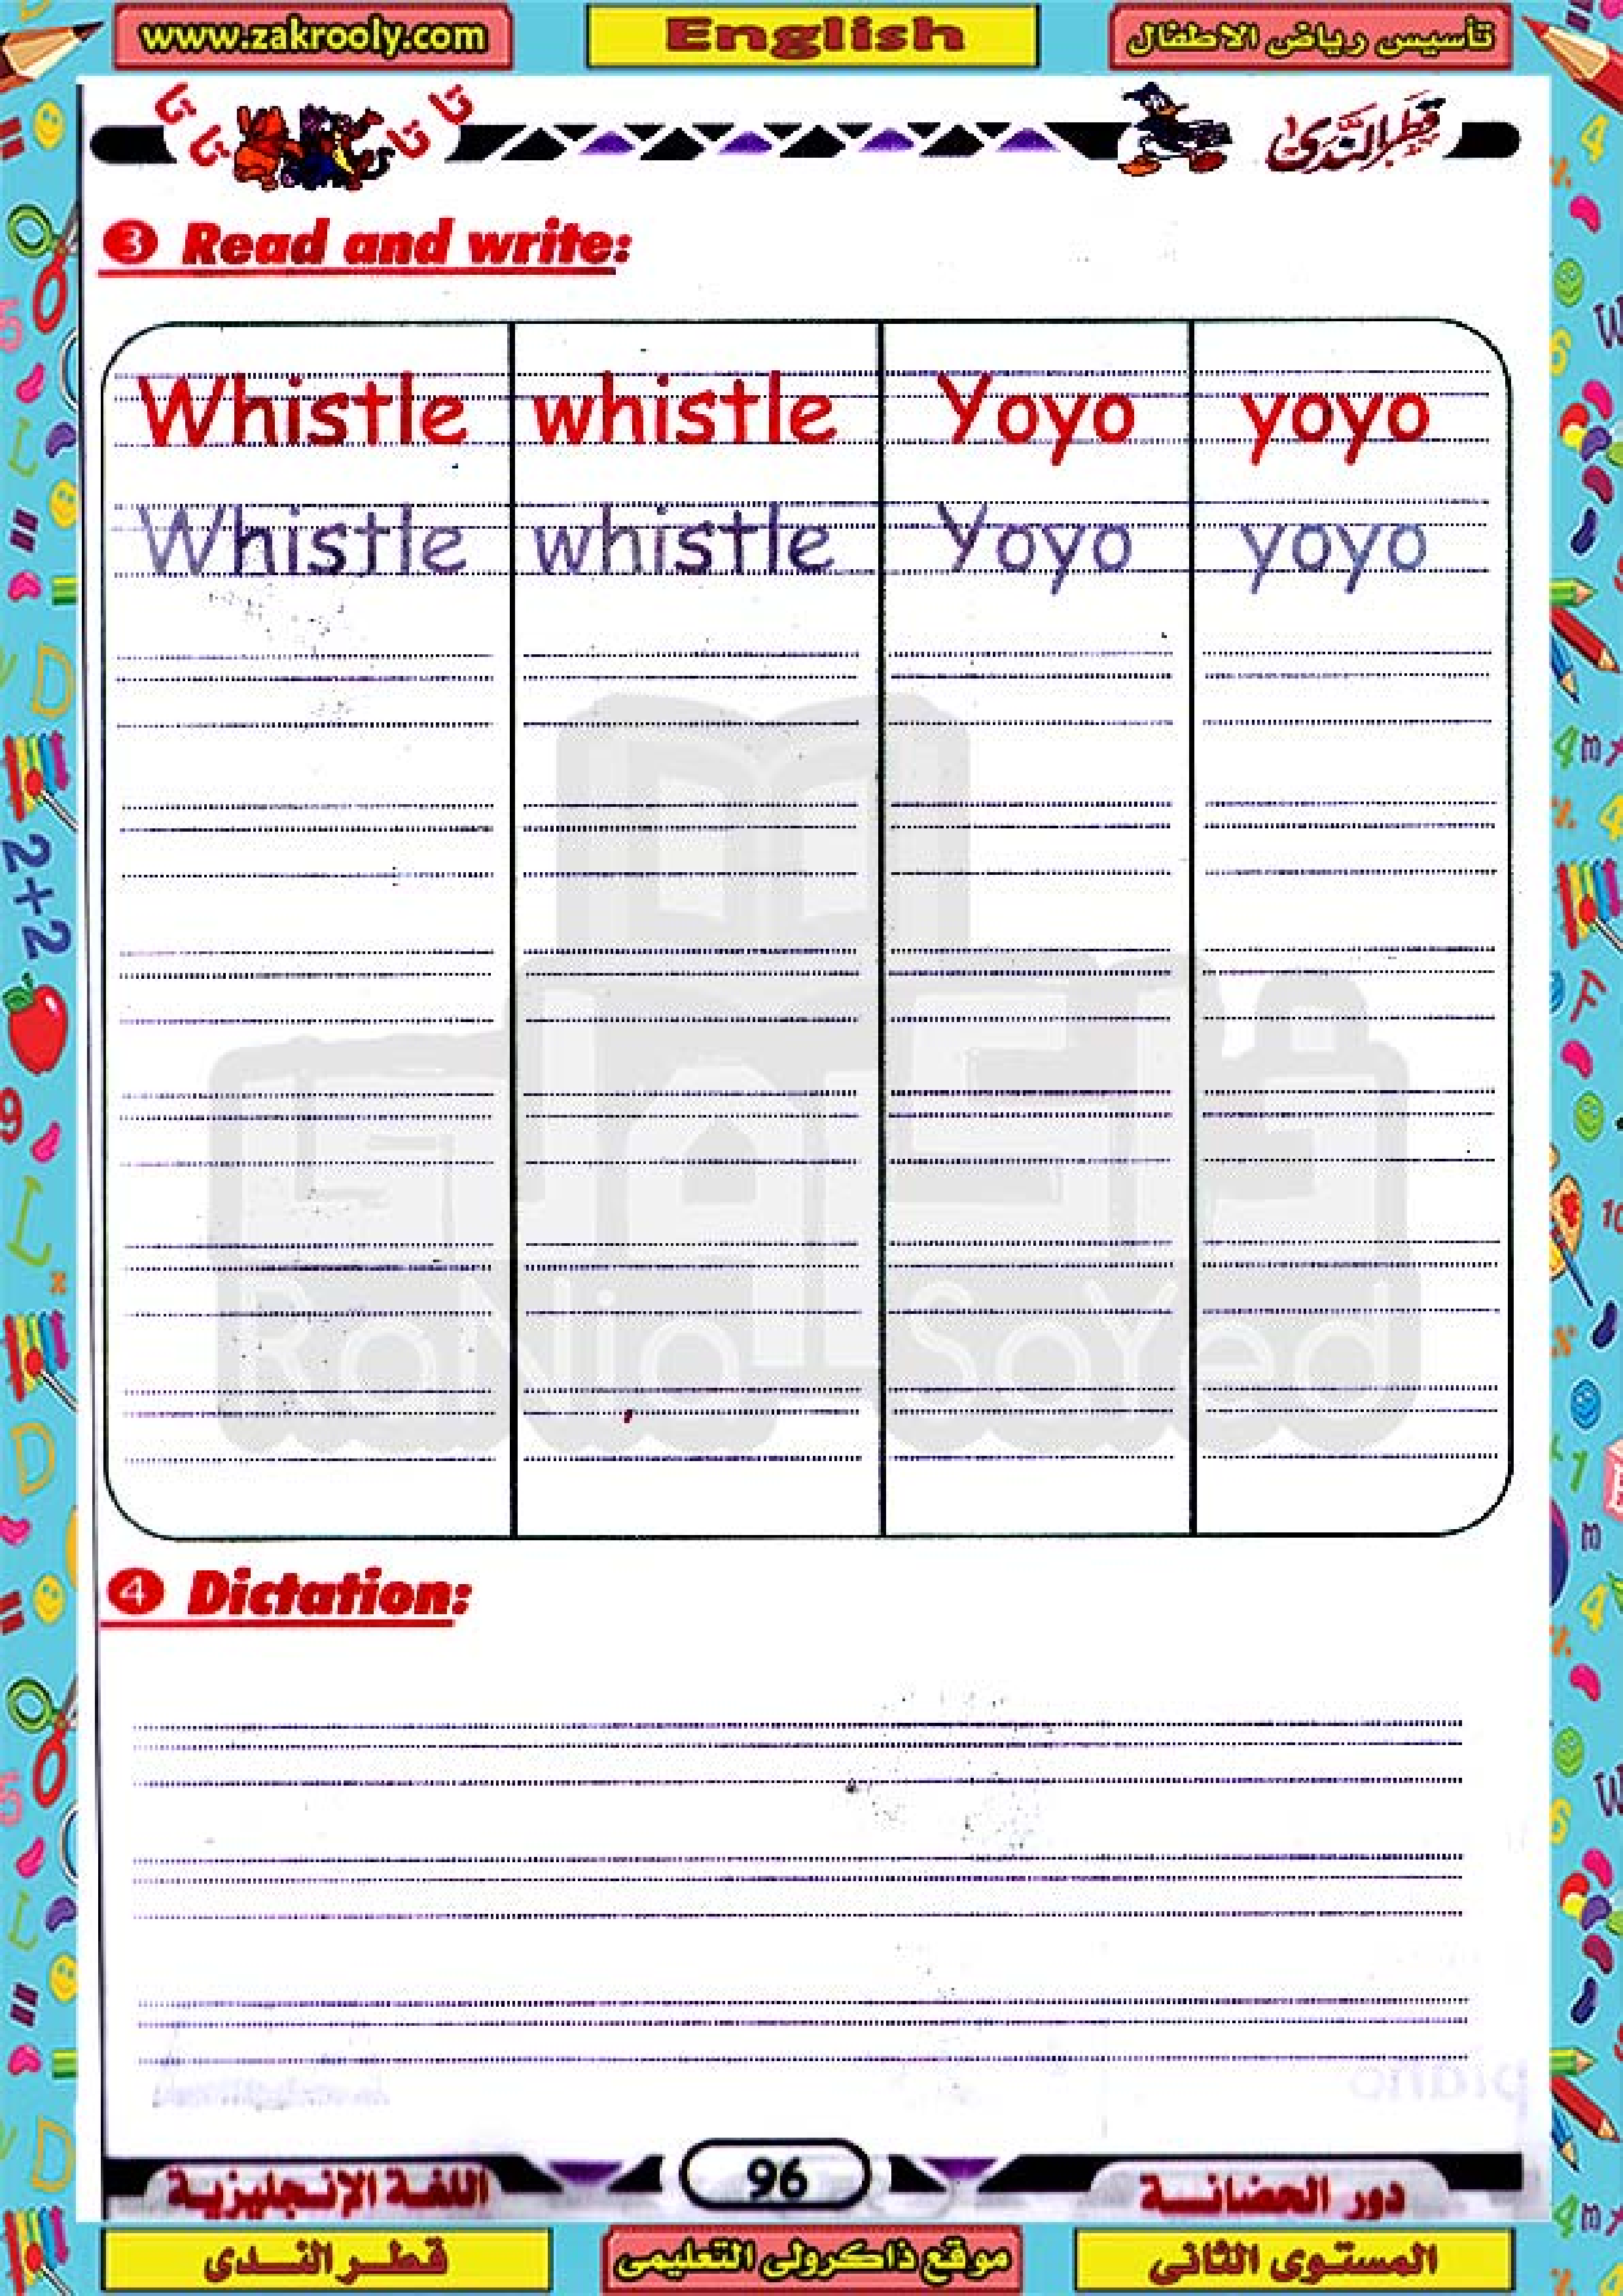 www.zakrooly.com
English
تأسيس رياض الاطفال
تا تا
تا تا
قطر الندى
3 Read and write:
Whistle whistle Yoyo yoyo
Whistle whistle Yoyo yoyo
RaNia SaYed
4 Dictation:
piano
اللغة الإنجليزية
96
دور الحضانة
قطر الندى
موقع ذاكرولى التعليمى
المستوى الثانى